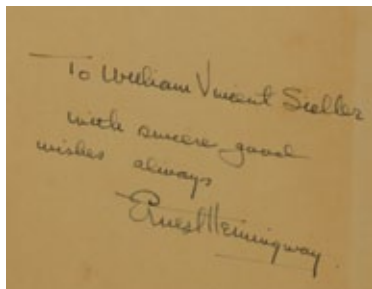 To William Vincent Sieller
with sincere good
wishes always
Ernest Hemingway